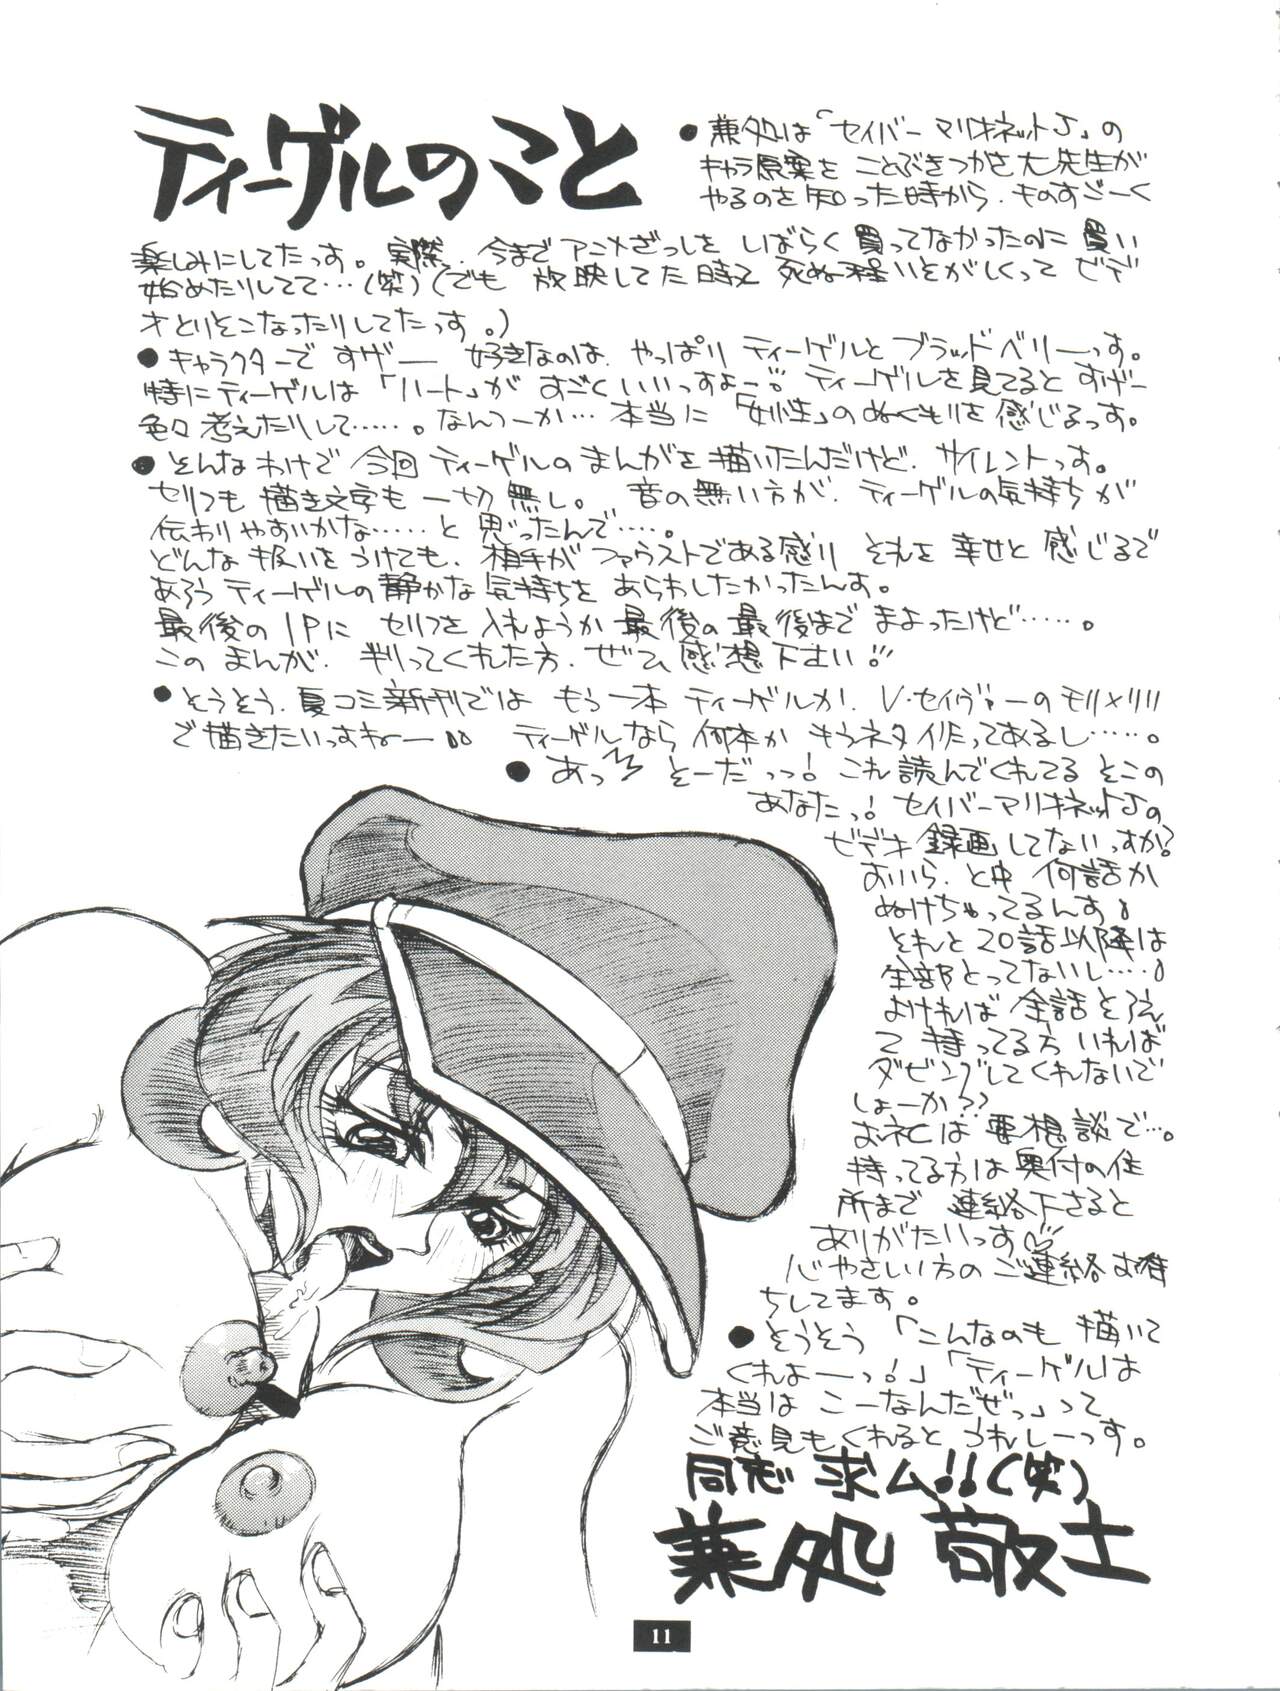 ティーゲルのこと
●兼処は「セイバーマリオネットJ」の
キャラ原案をことぶきつかさ大先生が
やるのを知った時から、ものすごーく
楽しみにしてたっす。実際、今までアニメざっしをしばらく買ってなかったのに買い
始めたりしてて…(笑)(でも放映してた時って死ぬ程いそがしくってビデ
オとりそこなったりしてたっす。)
●キャラクターですげー好きなのは、やっぱりティーゲルとブラッドベリーっす。
特にティーゲルは「ハート」がすごくいいっすよー!ティーゲルを見てるとすげー
色々考えたりして……。なんつーか…本当に「女性」のぬくもりを感じるっす。
●そんなわけで今回ティーゲルのまんがを描いたんだけど、サイレントっす。
セリフも描き文字も一切無し。音の無い方が、ティーゲルの気持ちが
伝わりやすいかな……と思ったんで……。
どんな扱いをうけても、相手がファウストである限り、それを幸せと感じるで
あろうティーゲルの静かな気持ちをあらわしたかったんす。
最後の1Pにセリフを入れようか最後の最後までまよったけど……。
このまんが、判ってくれた方、ぜひ感想下さい!!
●そうそう、夏コミ新刊ではもう一本ティーゲルか、V・セイヴァーのモリ×リリ
で描きたいっすねー!!ティーゲルなら何本かもうネタ作ってあるし……。
●あっそーだっっ!これ読んでくれてるそこの
あなたっ!セイバーマリオネットJの
ビデオ録画してないっすか?
おいら、と中何話か
ぬけちゃってるんす。
それと20話以降は
全部とってないし…。
よければ全話とろえ
て持ってる方いれば
ダビングしてくれないで
しょーか??
お礼は要相談で…。
持ってる方は奥付の住
所まで連絡下さると
ありがたいっす♡
心やさしい方のご連絡お待
ちしてます。
●そうそう「こんなのも描いて
くれよーっ!」「ティーゲルは
本当はこーなんだぜっ」って
ご意見もくれるとうれしーっす。
同志求ム!!(笑)
兼処敬士
11